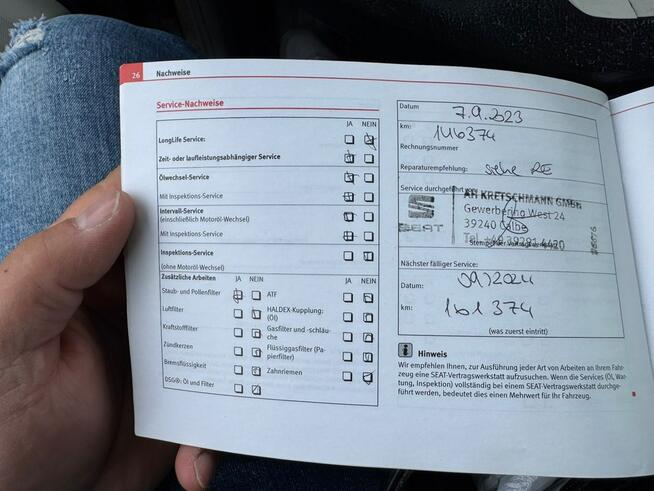 26 Nachweise
Service-Nachweise
JA NEIN
LongLife Service:
Zeit- oder laufleistungsabhängiger Service
Ölwechsel-Service
Mit Inspektions-Service
Intervall-Service
(einschließlich Motoröl-Wechsel)
Mit Inspektions-Service
Inspektions-Service
(ohne Motoröl-Wechsel)
Zusätzliche Arbeiten JA NEIN JA NEIN
Staub- und Pollenfilter
Luftfilter
Kraftstofffilter
Zündkerzen
Bremsflüssigkeit
DSG®: Öl und Filter
ATF
HALDEX-Kupplung:
(Öl)
Gasfilter und -schläu-
che
Flüssiggasfilter (Pa-
pierfilter)
Zahnriemen
Datum 7.9.2023
km: 146374
Rechnungsnummer
Reparaturempfehlung: siehe RE
Service durchgeführt von:
SEAT
AH KRETSCHMANN GmbH
Gewerbering West 24
39240 Calbe
Tel. +49 39291 4420
Nächster fälliger Service:
Datum: 09/2024
km: 161374
(was zuerst eintritt)
Hinweis
Wir empfehlen Ihnen, zur Ausführung jeder Art von Arbeiten an Ihrem Fahr-
zeug eine SEAT-Vertragswerkstatt aufzusuchen. Wenn die Services (Öl, War-
tung, Inspektion) vollständig bei einem SEAT-Vertragswerkstatt durchge-
führt werden, bedeutet dies einen Mehrwert für Ihr Fahrzeug.